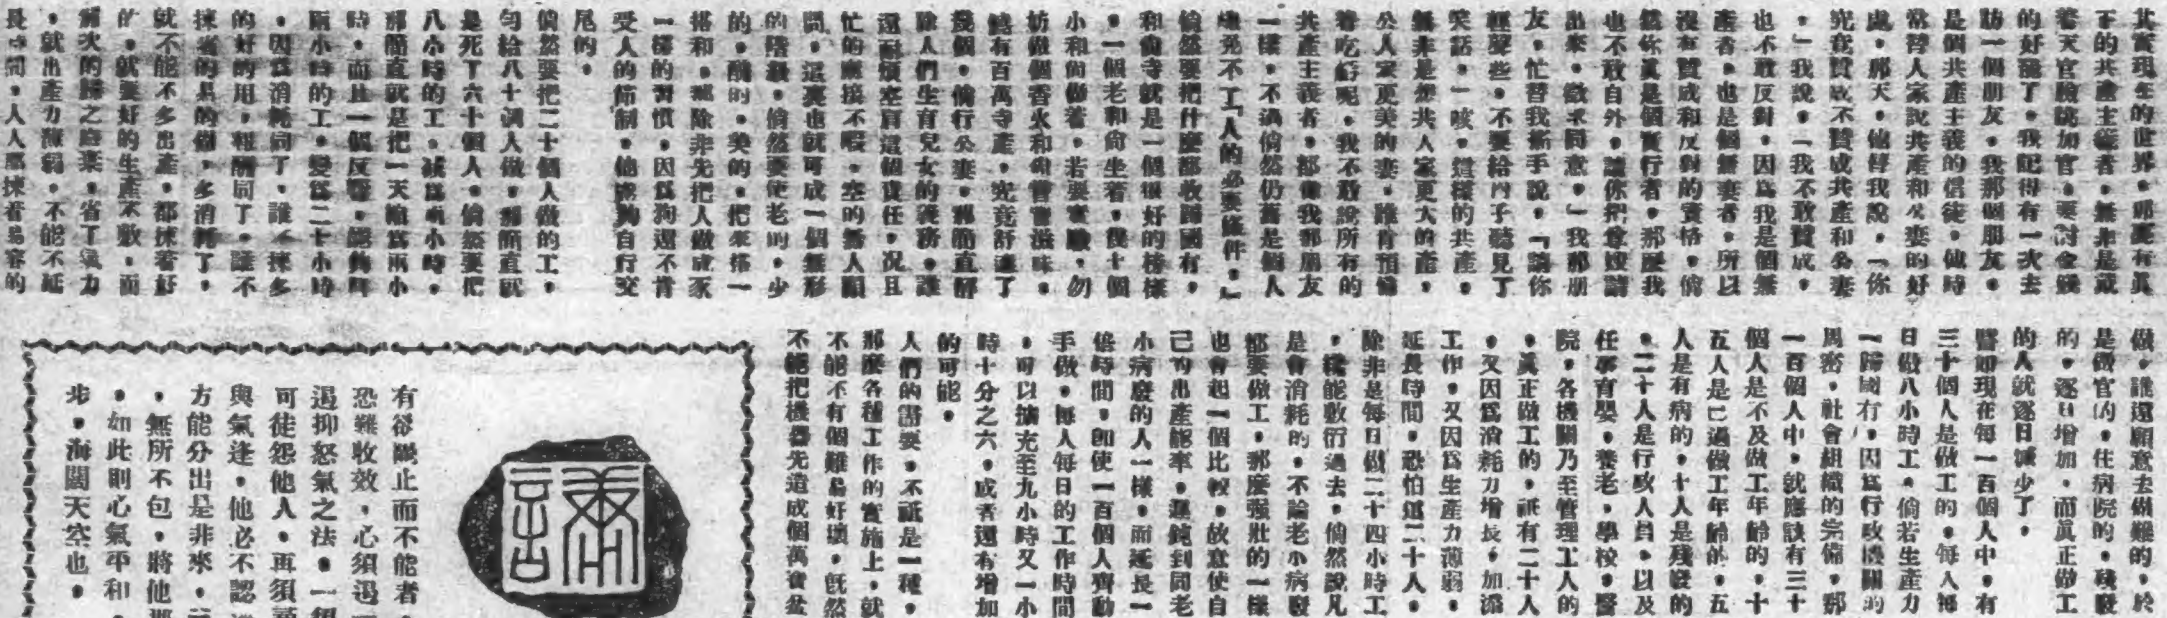 其實現在的世界。那裏有眞
正的共產主義者。無非是戴
着天官臉跳加官。要討金錢
的好罷了。我記得有一次去
訪一個朋友。我那個朋友。
是個共產主義的信徒。他時
常替人家說共產和公妻的好
處。那天。他對我說。「你
究竟贊成不贊成共產和公妻
。」我說。「我不敢贊成。
也不敢反對。因爲我是個無
產者。也是個無妻者。所以
沒有贊成和反對的資格。倘
然你眞是個實行者。那麼我
也不敢自外。讓你把尊嫂請
出來。徵求同意。」我那朋
友。忙替我搖手說。「請你
輕聲些。不要給內子聽見了
笑話。」唉。這樣的共產。
無非是想共人家更大的產。
公人家更美的妻。誰肯預備
着吃虧呢。我不敢說所有的
共產主義者。都像我那朋友
一樣。不過倘然仍舊是個人
總免不了「人的必要條件。」
倘然要把什麼都收歸國有。
和尙寺就是一個很好的榜樣
。一個老和尙坐着。幾十個
小和尙做着。若要實驗。勿
妨做個香火和尙嘗嘗滋味。
饒有百萬寺產。究竟舒適了
幾個。倘行公妻。那簡直解
除人們生育兒女的義務。誰
還耐煩空肩這個責任。况且
忙的應接不暇。空的無人顧
問。這裏也就可成一個無形
的階級。倘然要使老的。少
的。醜的。美的。把來搭一
搭和。那除非先把人做成家
一樣的習慣。因爲狗還不肯
受人的節制。他會狗自行交
尾的。
倘然要把二十個人做的工。
勻給八十個人做。那簡直就
是死了六十個人。倘然要把
八小時的工。減爲兩小時。
那簡直就是把一天縮爲兩小
時。而且一個反響。能夠將
兩小時的工。變爲二十小時
。因爲消耗同了。誰不揀多
的好的用。報酬同了。誰不
揀省的易的做。多消耗了。
就不能不多出產。都揀着好
的。就要好的生產不敷。而
。就出產力薄弱。不能不延
長時間。人人都揀着易容的
做。誰還願意去做難的。於
是做官的。住病院的。殘廢
的。逐日增加。而眞正做工
的人就逐日減少了。
譬如現在每一百個人中。有
三十個人是做工的。每人每
日做八小時工。倘若生產力
一歸國有。因爲行政機關的
周密。社會組織的完備。那
一百個人中。就應該有三十
個人是不及做工年齡的。十
五人是已過做工年齡的。五
人是有病的。十人是殘廢的
。二十人是行政人員。以及
任事育嬰。養老。學校。醫
院。各機關乃至管理工人的
。眞正做工的。祇有二十人
。又因爲消耗力增長。加添
工作。又因爲生產力薄弱。
延長時間。恐怕這二十人。
除非是每日做二十四小時工
。纔能敷衍過去。倘然說凡
是會消耗的。不論老小病廢
都要做工。那麼強壯的一樣
也會起一個比較。故意使自
己的出產能率。遲鈍到同老
小病廢的人一樣。而延長一
倍時間。卽使一百個人齊動
手做。每人每日的工作時間
。可以擴充至九小時又一小
時十分之六。或者還有增加
的可能。
人們的需要。不祇是一種。
那麼各種工作的實施上。就
不能不有個難易好壞。旣然
不能把機器先造成個萬寶盆
有欲遏止而不能者。
恐難收效。心須遏
遏抑怒氣之法。一
可徒怨他人。再須
與氣逢。他必不認
方能分出是非來。
。無所不包。將他
。如此則心氣平和。
步。海闊天空也。